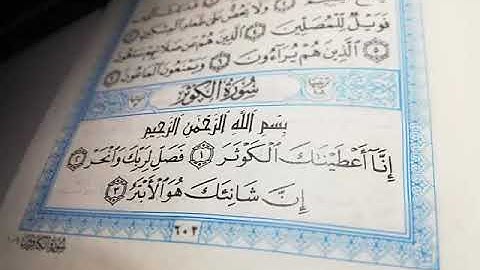 وَلَا يَحُضُّ عَلَىٰ طَعَامِ ٱلْمِسْكِينِ
فَوَيْلٌ لِّلْمُصَلِّينَ ٤ ٱلَّذِينَ هُمْ عَن صَلَاتِهِمْ سَاهُونَ
٥ ٱلَّذِينَ هُمْ يُرَآءُونَ ٦ وَيَمْنَعُونَ ٱلْمَاعُونَ
سُورَةُ الْكَوْثَرِ
بِسْمِ ٱللَّهِ ٱلرَّحْمَٰنِ ٱلرَّحِيمِ
إِنَّآ أَعْطَيْنَٰكَ ٱلْكَوْثَرَ ١ فَصَلِّ لِرَبِّكَ وَٱنْحَرْ ٢
إِنَّ شَانِئَكَ هُوَ ٱلْأَبْتَرُ ٣
٦٠٢